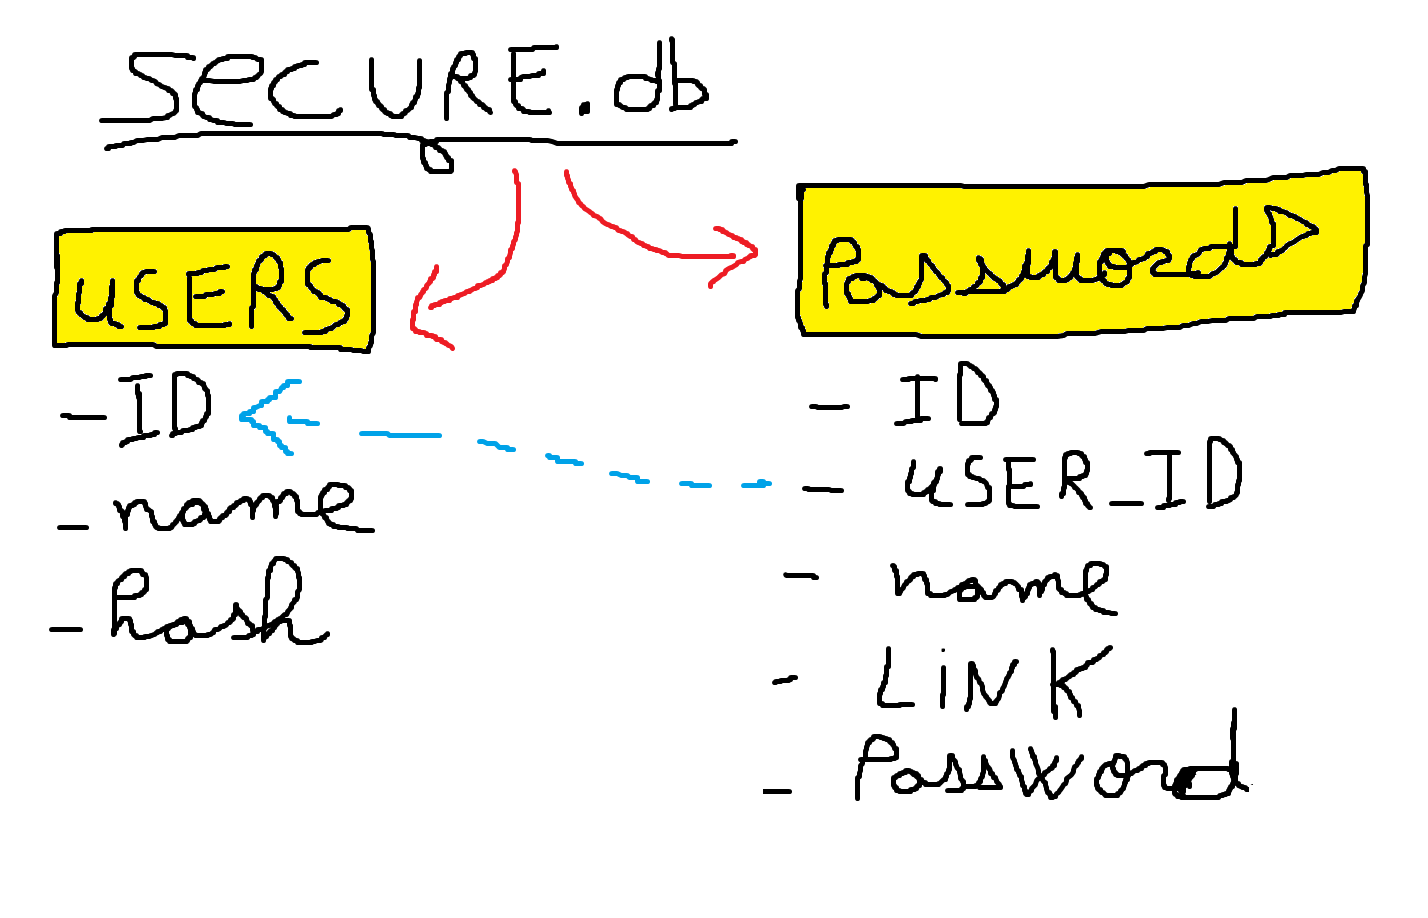 SeCURE.db
USERS
- ID
- name
- hash
Passwords
- ID
- USER_ID
- name
- LiNK
- PassWord